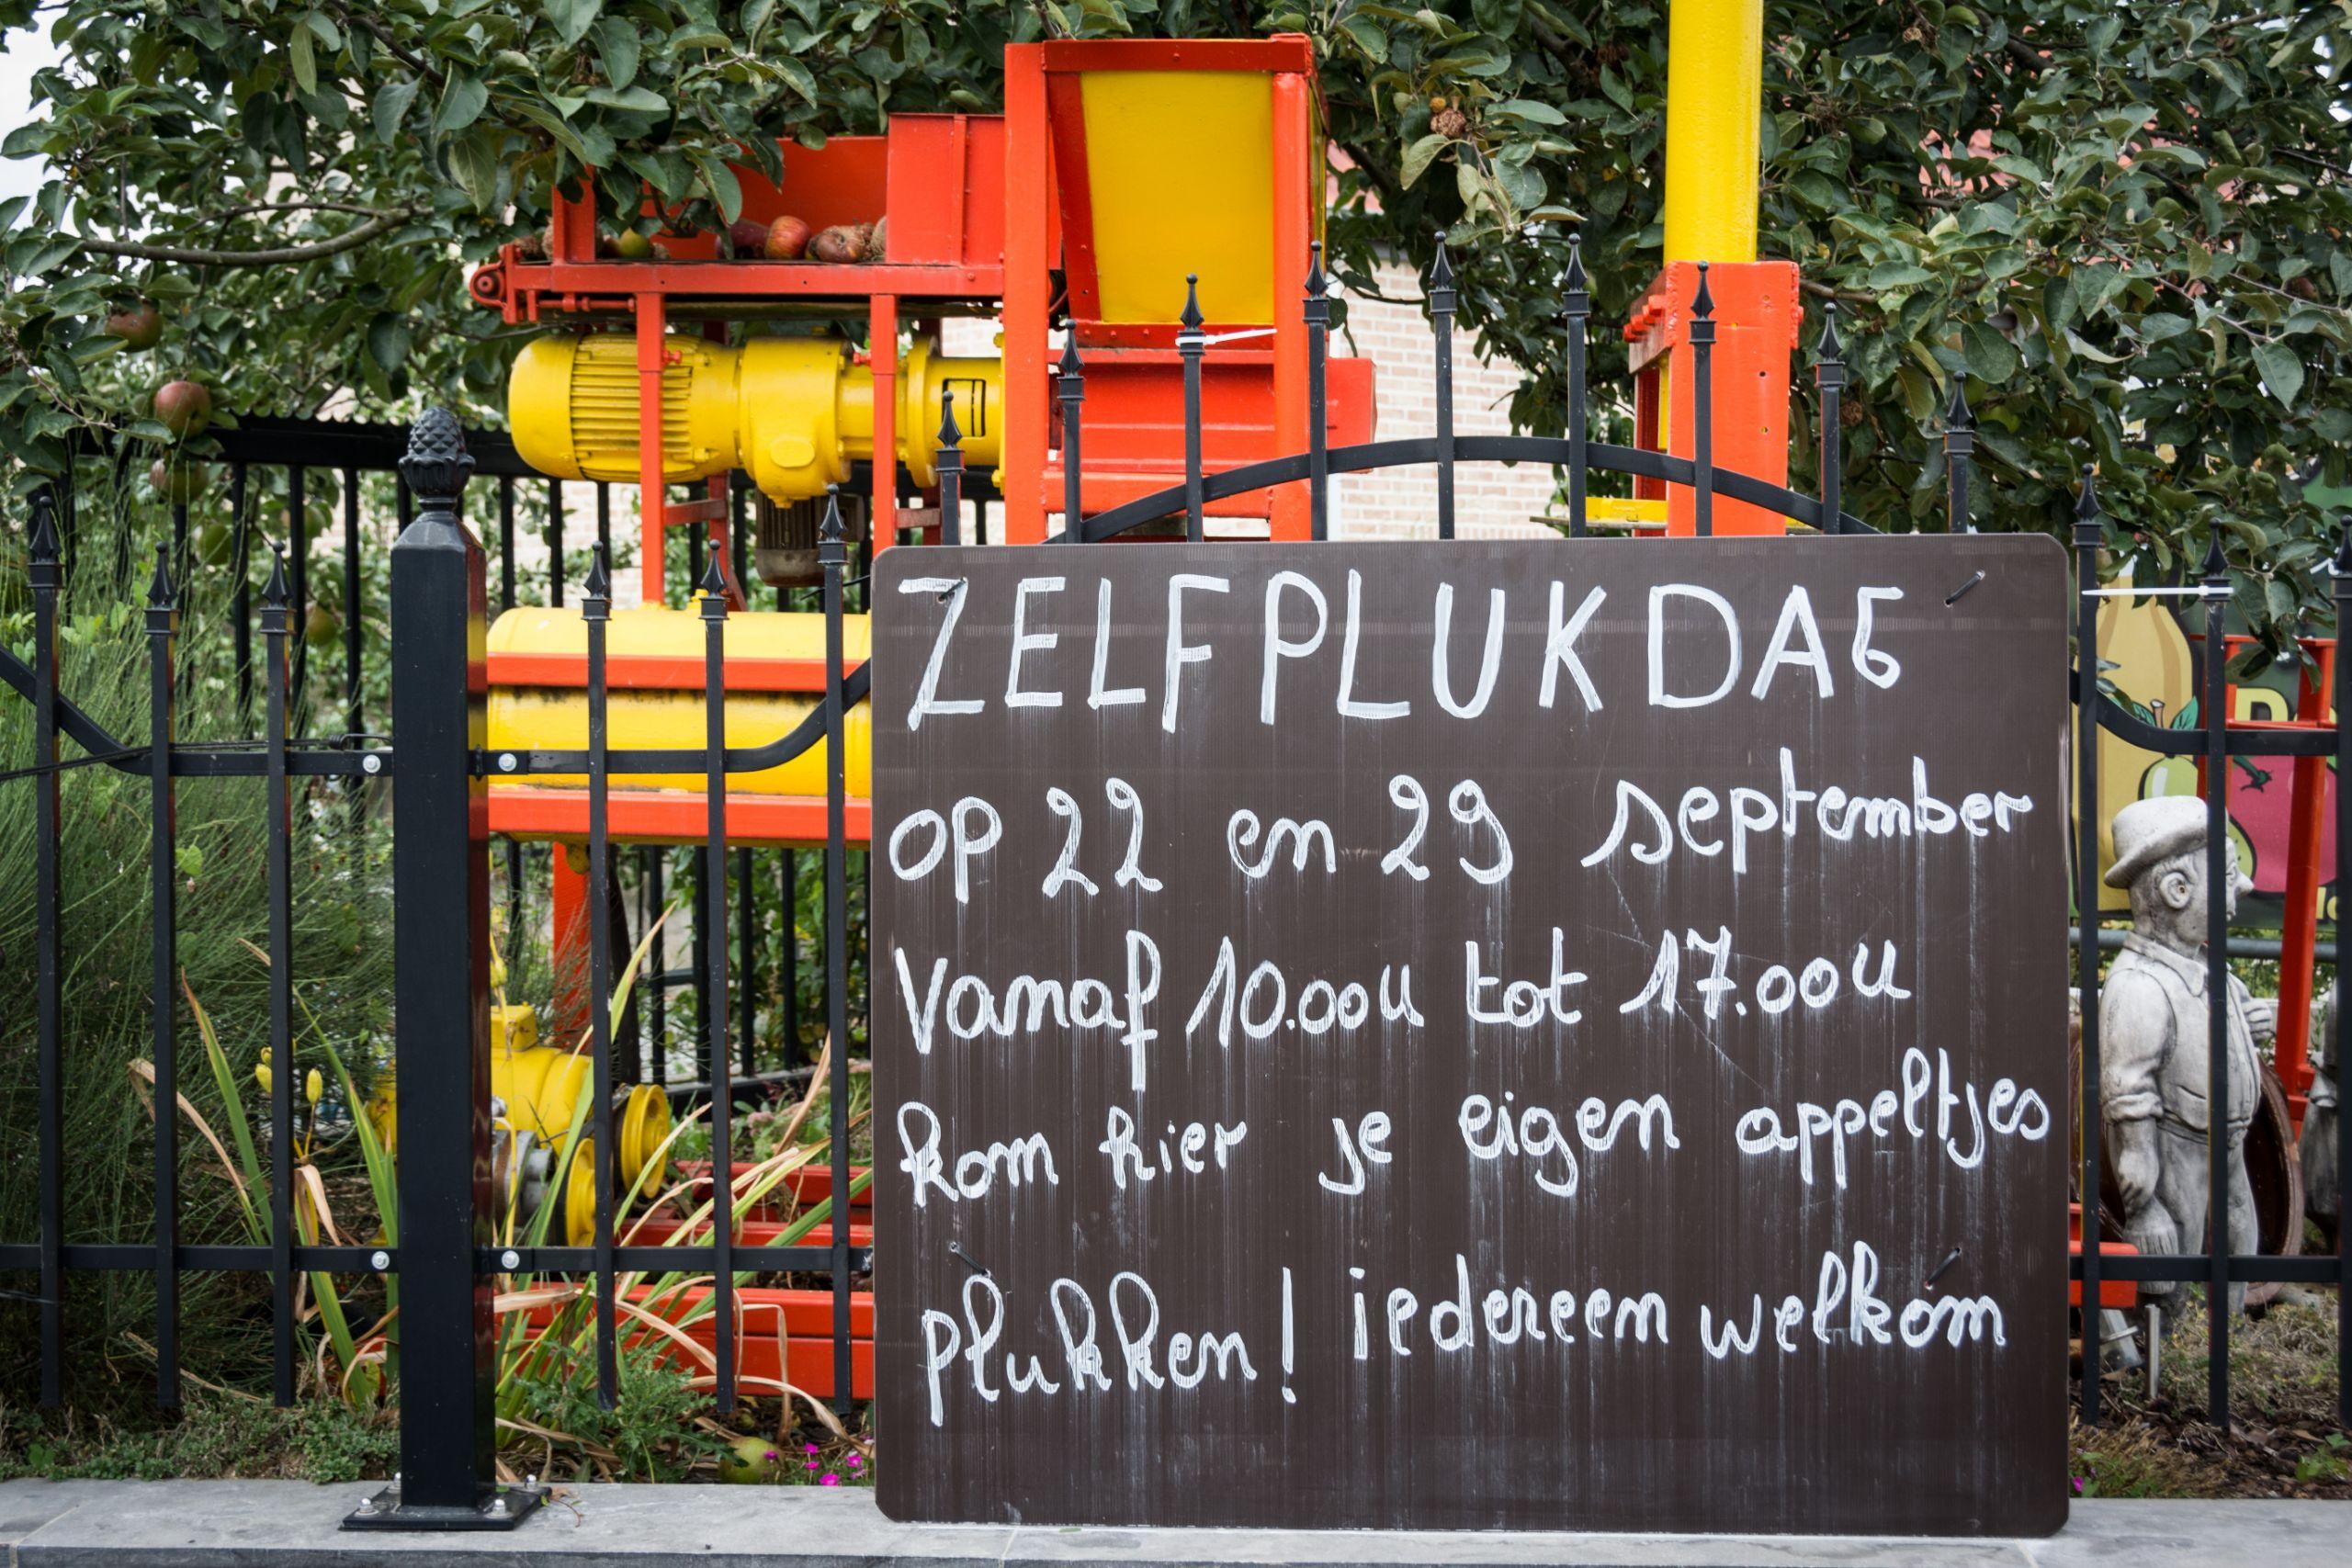 ZELFPLUKDAG
op 22 en 29 september
Vanaf 10.00u tot 17.00u
kom hier je eigen appeltjes
plukken! iedereen welkom